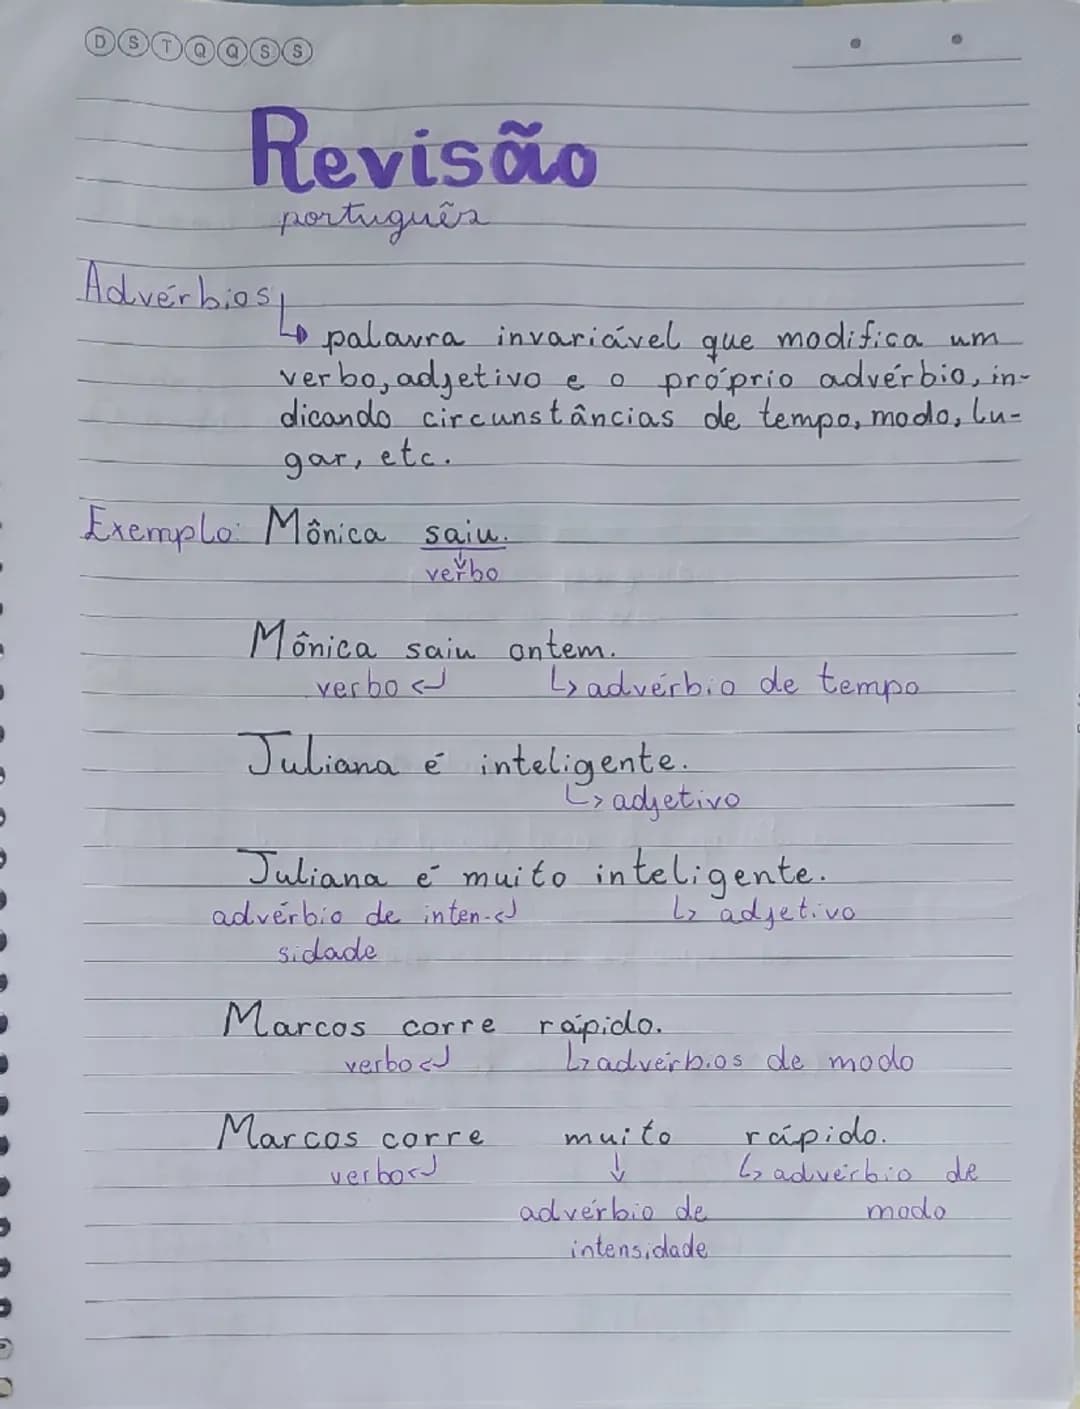 D S T Q Q S S
Revisão
português
Advérbios
palavra invariável que modifica um
verbo, adjetivo e o próprio advérbio, in-
dicando circunstâncias de tempo, modo, lu-
gar, etc.
Exemplo: Mônica saiu.
verbo
Mônica saiu ontem.
verbo advérbio de tempo
Juliana é inteligente.
adjetivo
Juliana é muito inteligente.
advérbio de inten- adjetivo
sidade
Marcos corre rápido.
verbo advérbios de modo
Marcos corre muito rápido.
verbo advérbio de
advérbio de modo
intensidade